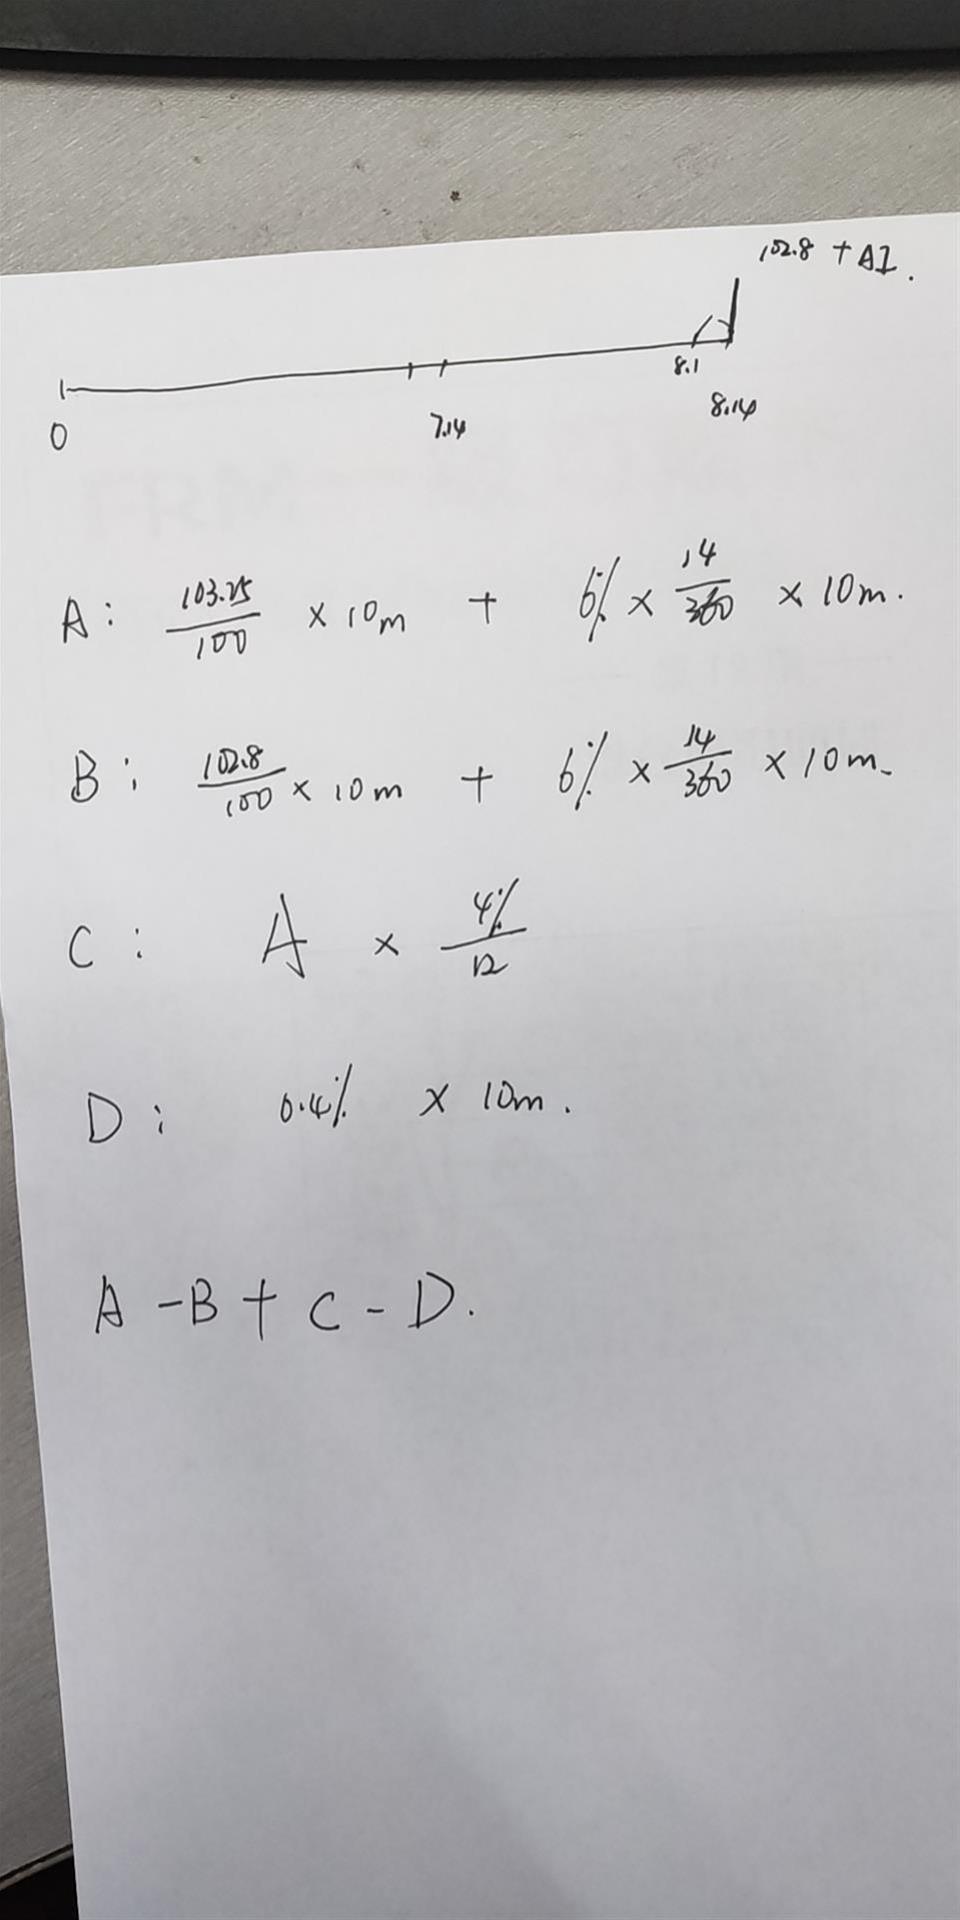 102.8 + AI.
0 7.14 8.1 8.14
A: 103.25/100 × 10m + 6% × 14/360 × 10m.
B: 102.8/100 × 10m + 6% × 14/360 × 10m.
C: A × 4%/12
D: 0.4% × 10m.
A - B + C - D.